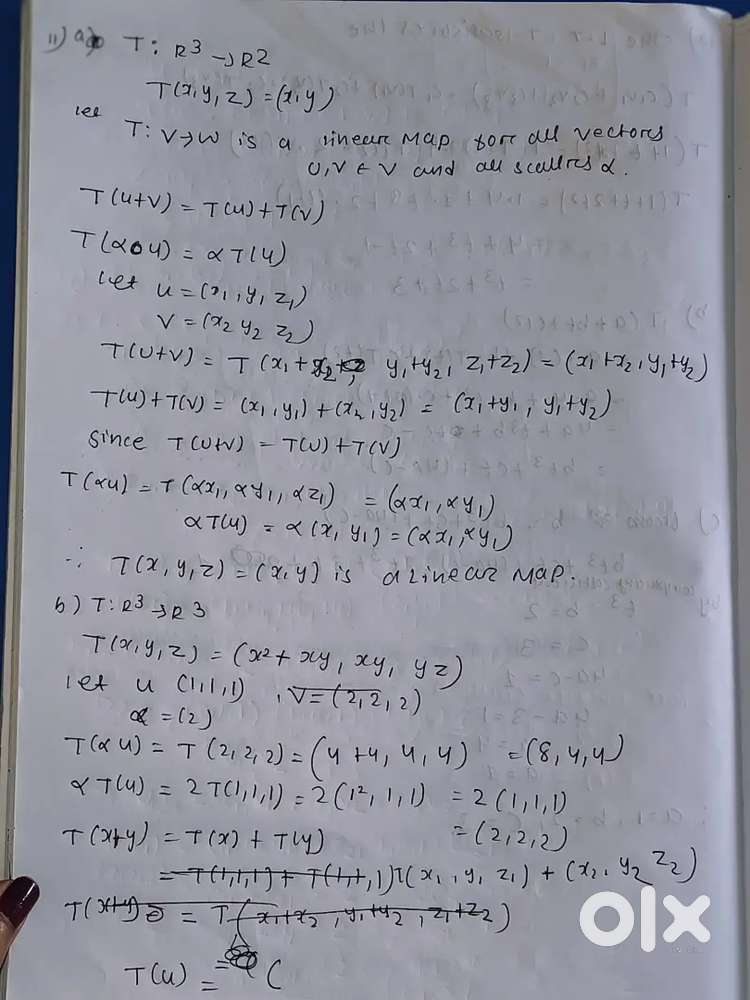 11) a) T: R³ → R2
T(x, y, z) = (x, y)
let
T: V→W is a linear map for all vectors
U, V ∈ V and all scallres α.
T(u+v) = T(u) + T(v)
T(α u) = α T(u)
let u = (x₁, y, z₁)
v = (x₂ y₂ z₂)
T(u+v) = T(x₁+x₂, y₁+y₂, z₁+z₂) = (x₁+x₂, y₁+y₂)
T(u) + T(v) = (x₁, y₁) + (x₂, y₂) = (x₁+y₁, y₁+y₂)
since T(u+v) = T(u) + T(v)
T(αu) = T(αx₁, αy₁, αz₁) = (αx₁, αy₁)
αT(u) = α(x, y₁) = (αx₁, αy₁)
∴ T(x, y, z) = (x, y) is a linear map.
b) T: R³ → R 3
T(x, y, z) = (x² + xy, xy, yz)
let u (1, 1, 1), V = (2, 2, 2)
α = (2)
T(αu) = T(2, 2, 2) = (4+4, 4, 4) = (8, 4, 4)
αT(u) = 2T(1, 1, 1) = 2(1², 1, 1) = 2(1, 1, 1)
T(x+y) = T(x) + T(y) = (2, 2, 2)
= T(1, 1, 1) + T(1, 1, 1) T(x₁, y, z₁) + (x₂, y₂ z₂)
T(x+y) = T(x₁+x₂, y₁+y₂, z₁+z₂)
T(u) = (
olx